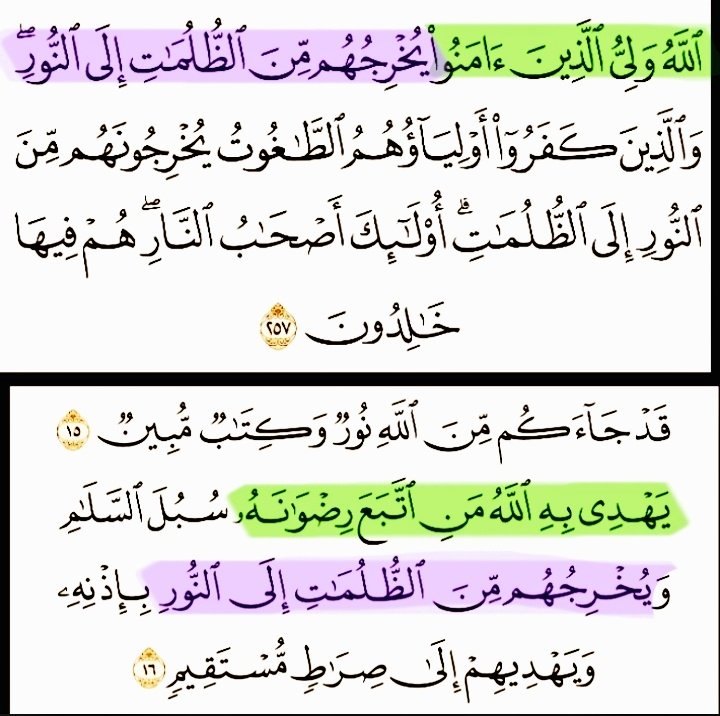 ٱللَّهُ وَلِىُّ ٱلَّذِينَ ءَامَنُوا۟ يُخْرِجُهُم مِّنَ ٱلظُّلُمَـٰتِ إِلَى ٱلنُّورِ ۖ
وَٱلَّذِينَ كَفَرُوٓا۟ أَوْلِيَآؤُهُمُ ٱلطَّـٰغُوتُ يُخْرِجُونَهُم مِّنَ
ٱلنُّورِ إِلَى ٱلظُّلُمَـٰتِ ۗ أُو۟لَـٰٓئِكَ أَصْحَـٰبُ ٱلنَّارِ ۖ هُمْ فِيهَا
خَـٰلِدُونَ ٢٥٧
قَدْ جَآءَكُم مِّنَ ٱللَّهِ نُورٌ وَكِتَـٰبٌ مُّبِينٌ ١٥
يَهْدِى بِهِ ٱللَّهُ مَنِ ٱتَّبَعَ رِضْوَٰنَهُۥ سُبُلَ ٱلسَّلَـٰمِ
وَيُخْرِجُهُم مِّنَ ٱلظُّلُمَـٰتِ إِلَى ٱلنُّورِ بِإِذْنِهِۦ
وَيَهْدِيهِمْ إِلَىٰ صِرَٰطٍ مُّسْتَقِيمٍ ١٦